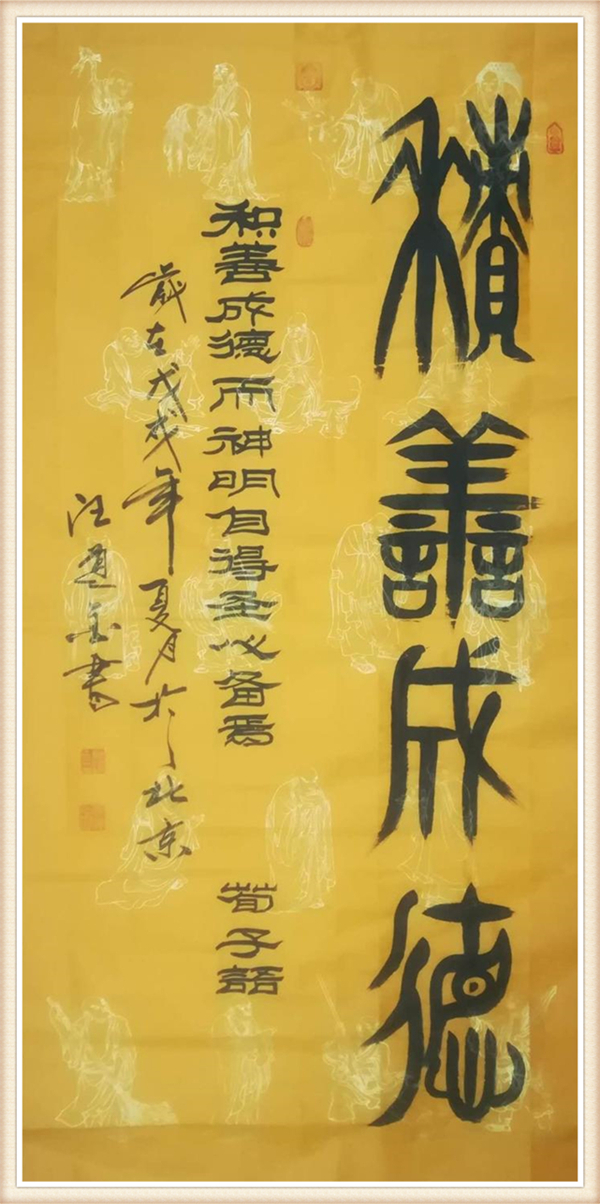 積善成德
积善成德而神明自得圣心备焉
荀子語
歲在戊戌年夏月於北京
汪
書